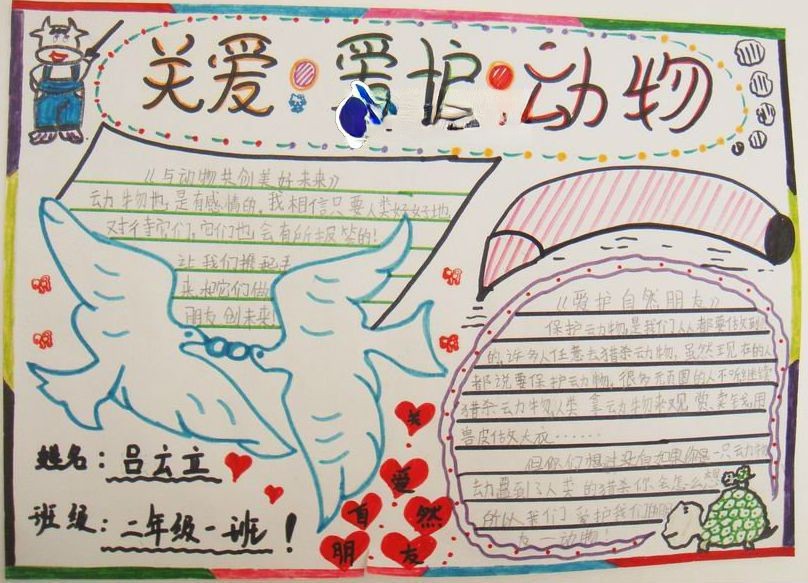 关爱·爱护·动物
《与动物共创美好未来》
动物也是有感情的,我相信只要人类好好地
对待它们,它们也会有所报答的!
让我们携起手
来,把它们做
朋友创未来
《爱护自然朋友》
保护动物,是我们人人都要做到
的,许多人任意去猎杀动物,虽然现在的人
都说要保护动物,很多 的人不断继续
猎杀动物,人类拿动物来观赏、卖钱,用
兽皮做大衣……
但你们想过没有如果你是一只动物
动 遇到了人类的猎杀你会怎么想
所以我们爱护我们
友—动物!
关
爱
自
然
朋
友
姓名:吕云立
班级:二年级一班!